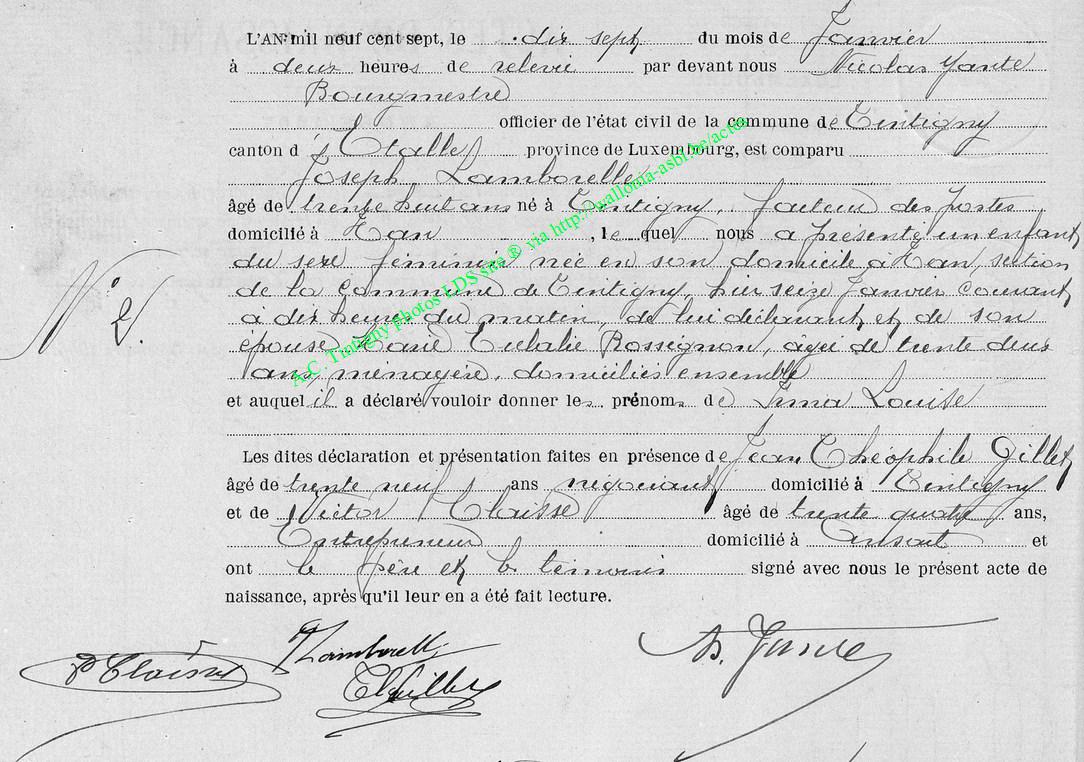 L'AN mil neuf cent sept, le dix sept du mois de Janvier
à deux heures de relevée par devant nous Nicolas Yante
Bourgmestre
officier de l'état civil de la commune de Tintigny
canton d'Etalle province de Luxembourg, est comparu
Joseph Lamborelle
âgé de trente huit ans né à Tintigny, facteur des postes
domicilié à Han, lequel nous a présenté un enfant
N° 2.
du sexe féminin née en son domicile à Han, section
de la commune de Tintigny, hier seize Janvier courant
à dix heures du matin, de lui déclarant et de son
épouse Marie Eulalie Rossignon, agée de trente deux
ans, ménagère, domiciliés ensemble
et auquel il a déclaré vouloir donner les prénoms de Irma Louise
Les dites déclaration et présentation faites en présence de Jean Théophile Gillet
âgé de trente neuf ans négociant domicilié à Tintigny
et de Victor Claisse âgé de trente quatre ans,
Entrepreneur domicilié à Ansart et
ont le père et les témoins signé avec nous le présent acte de
naissance, après qu'il leur en a été fait lecture.
Lamborelle
N. Yante
V Claisse
Th Gillet
A.C. Tintigny photos LDS site ® via http://wallonia-asbl.be/actes